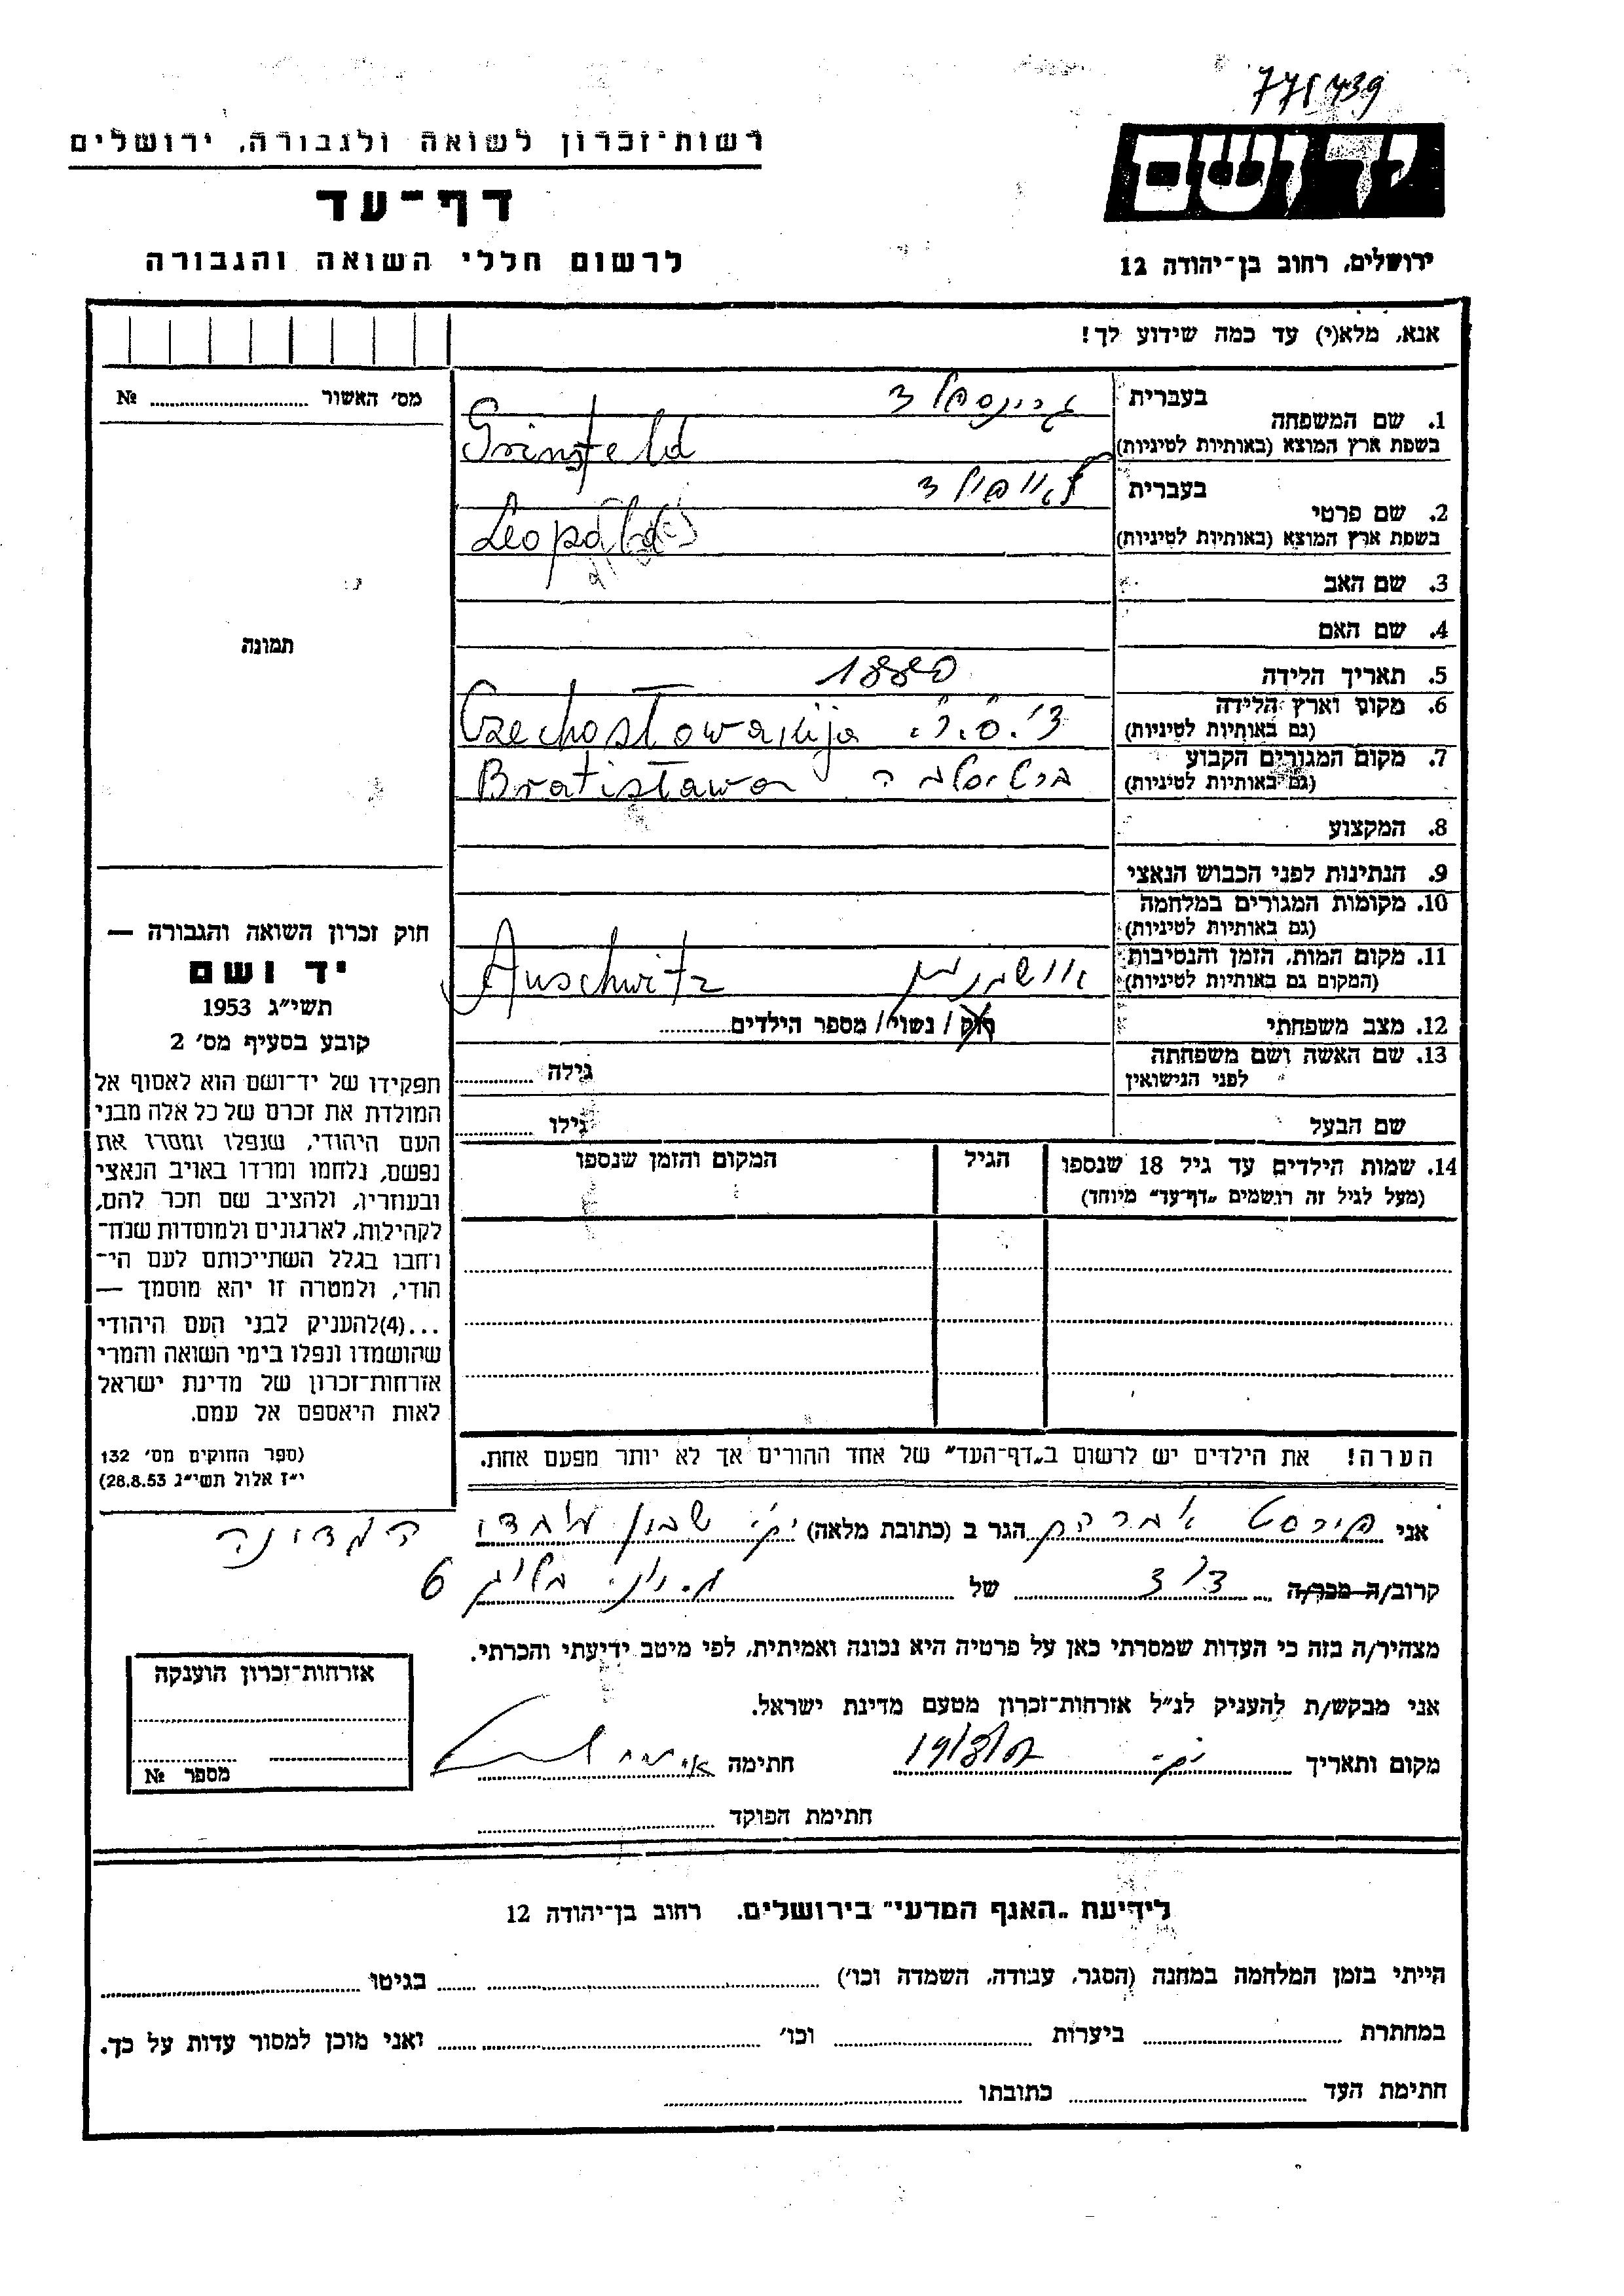 771439
יד ושם
רשות־זכרון לשואה ולגבורה, ירושלים
דף־עד
לרשום חללי השואה והגבורה
ירושלים, רחוב בן־יהודה 12
אנא, מלא(י) עד כמה שידוע לך!
מס׳ האשור № 
1. שם המשפחה בעברית גרינספלד
בשפת ארץ המוצא (באותיות לטיניות) Grinsfeld
2. שם פרטי בעברית לאופולד
בשפת ארץ המוצא (באותיות לטיניות) Leopold
3. שם האב
4. שם האם
תמונה
5. תאריך הלידה 1880
6. מקום וארץ הלידה (גם באותיות לטיניות) צ׳.ס.ר. Czechosłowakija
7. מקום המגורים הקבוע (גם באותיות לטיניות) ברטיסלבה Bratisława
8. המקצוע
9. הנתינות לפני הכבוש הנאצי
10. מקומות המגורים במלחמה (גם באותיות לטיניות)
11. מקום המות, הזמן והנסיבות (המקום גם באותיות לטיניות) אושוויץ Auschwitz
12. מצב משפחתי רוק / נשוי / מספר הילדים
13. שם האשה ושם משפחתה לפני הנישואין גילה
שם הבעל גילו
14. שמות הילדים עד גיל 18 שנספו הגיל המקום והזמן שנספו
(מעל לגיל זה רושמים „דף־עד״ מיוחד)
הערה! את הילדים יש לרשום ב„דף־העד״ של אחד ההורים אך לא יותר מפעם אחת.
חוק זכרון השואה והגבורה —
יד ושם
תשי״ג 1953
קובע בסעיף מס׳ 2
תפקידו של יד־ושם הוא לאסוף אל
המולדת את זכרם של כל אלה מבני
העם היהודי, שנפלו ומסרו את
נפשם, נלחמו ומרדו באויב הנאצי
ובעוזריו, ולהציב שם וזכר להם,
לקהילות, לארגונים ולמוסדות שנח־
רבו בגלל השתייכותם לעם הי־
הודי, ולמטרה זו יהא מוסמך —
...(4)להעניק לבני העם היהודי
שהושמדו ונפלו בימי השואה והמרי
אזרחות־זכרון של מדינת ישראל
לאות היאספם אל עמם.
(ספר החוקים מס׳ 132
י״ז אלול תשי״ג 28.8.53)
אני הגר ב (כתובת מלאה) שכון
קרוב/ה מכר/ה דוד של 6
מצהיר/ה בזה כי העדות שמסרתי כאן על פרטיה היא נכונה ואמיתית, לפי מיטב ידיעתי והכרתי.
אני מבקש/ת להעניק לנ״ל אזרחות־זכרון מטעם מדינת ישראל.
מקום ותאריך חתימה
חתימת הפוקד
אזרחות־זכרון הוענקה
מספר №
לידיעת „האגף המדעי״ בירושלים, רחוב בן־יהודה 12
הייתי בזמן המלחמה במחנה (הסגר, עבודה, השמדה וכו׳) בגיטו
במחתרת ביערות וכו׳ ואני מוכן למסור עדות על כך.
חתימת העד כתובתו